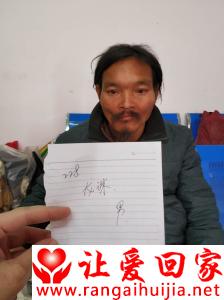 228
男
让爱回家
www.rangaihuijia.net